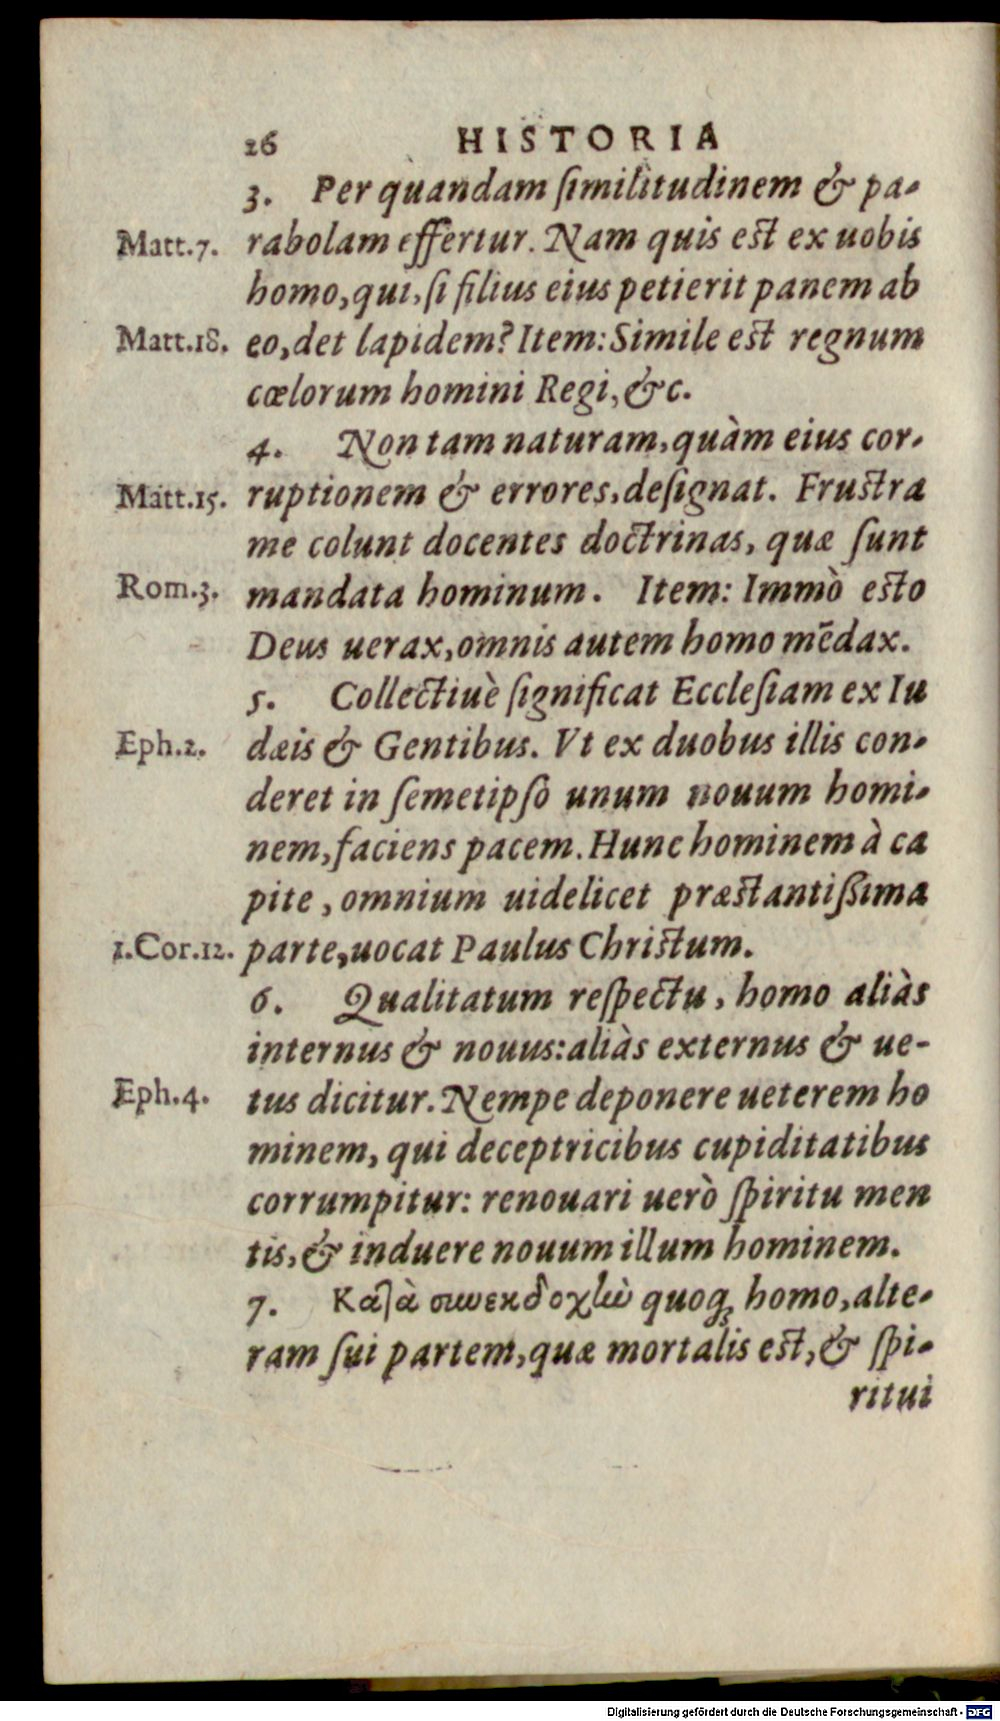 26 HISTORIA
3. Per quandam ſimilitudinem & pa-
Matt.7. rabolam effertur. Nam quis est ex uobis
homo, qui, ſi filius eius petierit panem ab
Matt.18. eo, det lapidem? Item: Simile est regnum
cœlorum homini Regi, &c.
4. Non tam naturam, quàm eius cor-
Matt.15. ruptionem & errores, deſignat. Frustra
me colunt docentes doctrinas, quæ ſunt
Rom.3. mandata hominum. Item: Immò esto
Deus uerax, omnis autem homo mēdax.
5. Collectiuè ſignificat Eccleſiam ex Iu
Eph.2. dæis & Gentibus. Vt ex duobus illis con-
deret in ſemetipſo unum nouum homi-
nem, faciens pacem. Hunc hominem à ca
pite, omnium uidelicet præstantiſsima
1.Cor.12. parte, uocat Paulus Christum.
6. Qualitatum reſpectu, homo aliàs
internus & nouus: aliàs externus & ue-
Eph.4. tus dicitur. Nempe deponere ueterem ho
minem, qui deceptricibus cupiditatibus
corrumpitur: renouari uerò ſpiritu men
tis, & induere nouum illum hominem.
7. Κατὰ συνεκδοχὴν quoq; homo, alte-
ram ſui partem, quæ mortalis est, & ſpi-
ritui
Digitalisierung gefördert durch die Deutsche Forschungsgemeinschaft - DFG